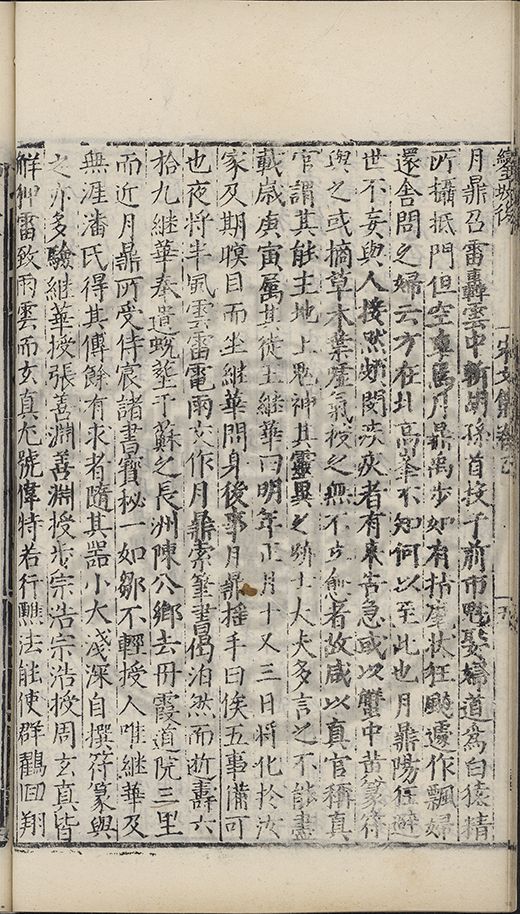 鑾坡後
宋文集卷之
月鼎召雷轟雲中斬胡孫首投于前市甿娶婦道爲白猿精
所攝抵門但空車焉月鼎禹步如有指麾狀狂颷遽作飄婦
還舍問之婦云方在北高峯不知何以至此也月鼎陽狂避
世不妄與人接然頗閔疢疾者有來告急或以蟹中黄篆符
與之或摘草木葉噓氣授之無不立愈者故咸以真官稱真
官謂其能主地上鬼神其靈異之跡士大夫多言之不能盡
載歲庚寅屬其徒王繼華曰明年正月十又三日將化於汝
家及期瞑目而坐繼華問身後事月鼎摇手曰俟五事備可
也夜將半風雲雷電雨交作月鼎索筆書偈泊然而逝壽六
拾九繼華奉遺蛻塟于蘇之長洲陳公鄉去丹霞道院三里
而近月鼎所受侍宸諸書寶秘一如鄒不輕授人唯繼華及
無涯潘氏得其傳餘有求者隨其器小大淺深自撰符篆與
之亦多驗繼華授張善淵善淵授步宗浩宗浩授周玄真皆
觧雷致雨雲而玄真尤號偉特若行醮法能使群鶴回翔